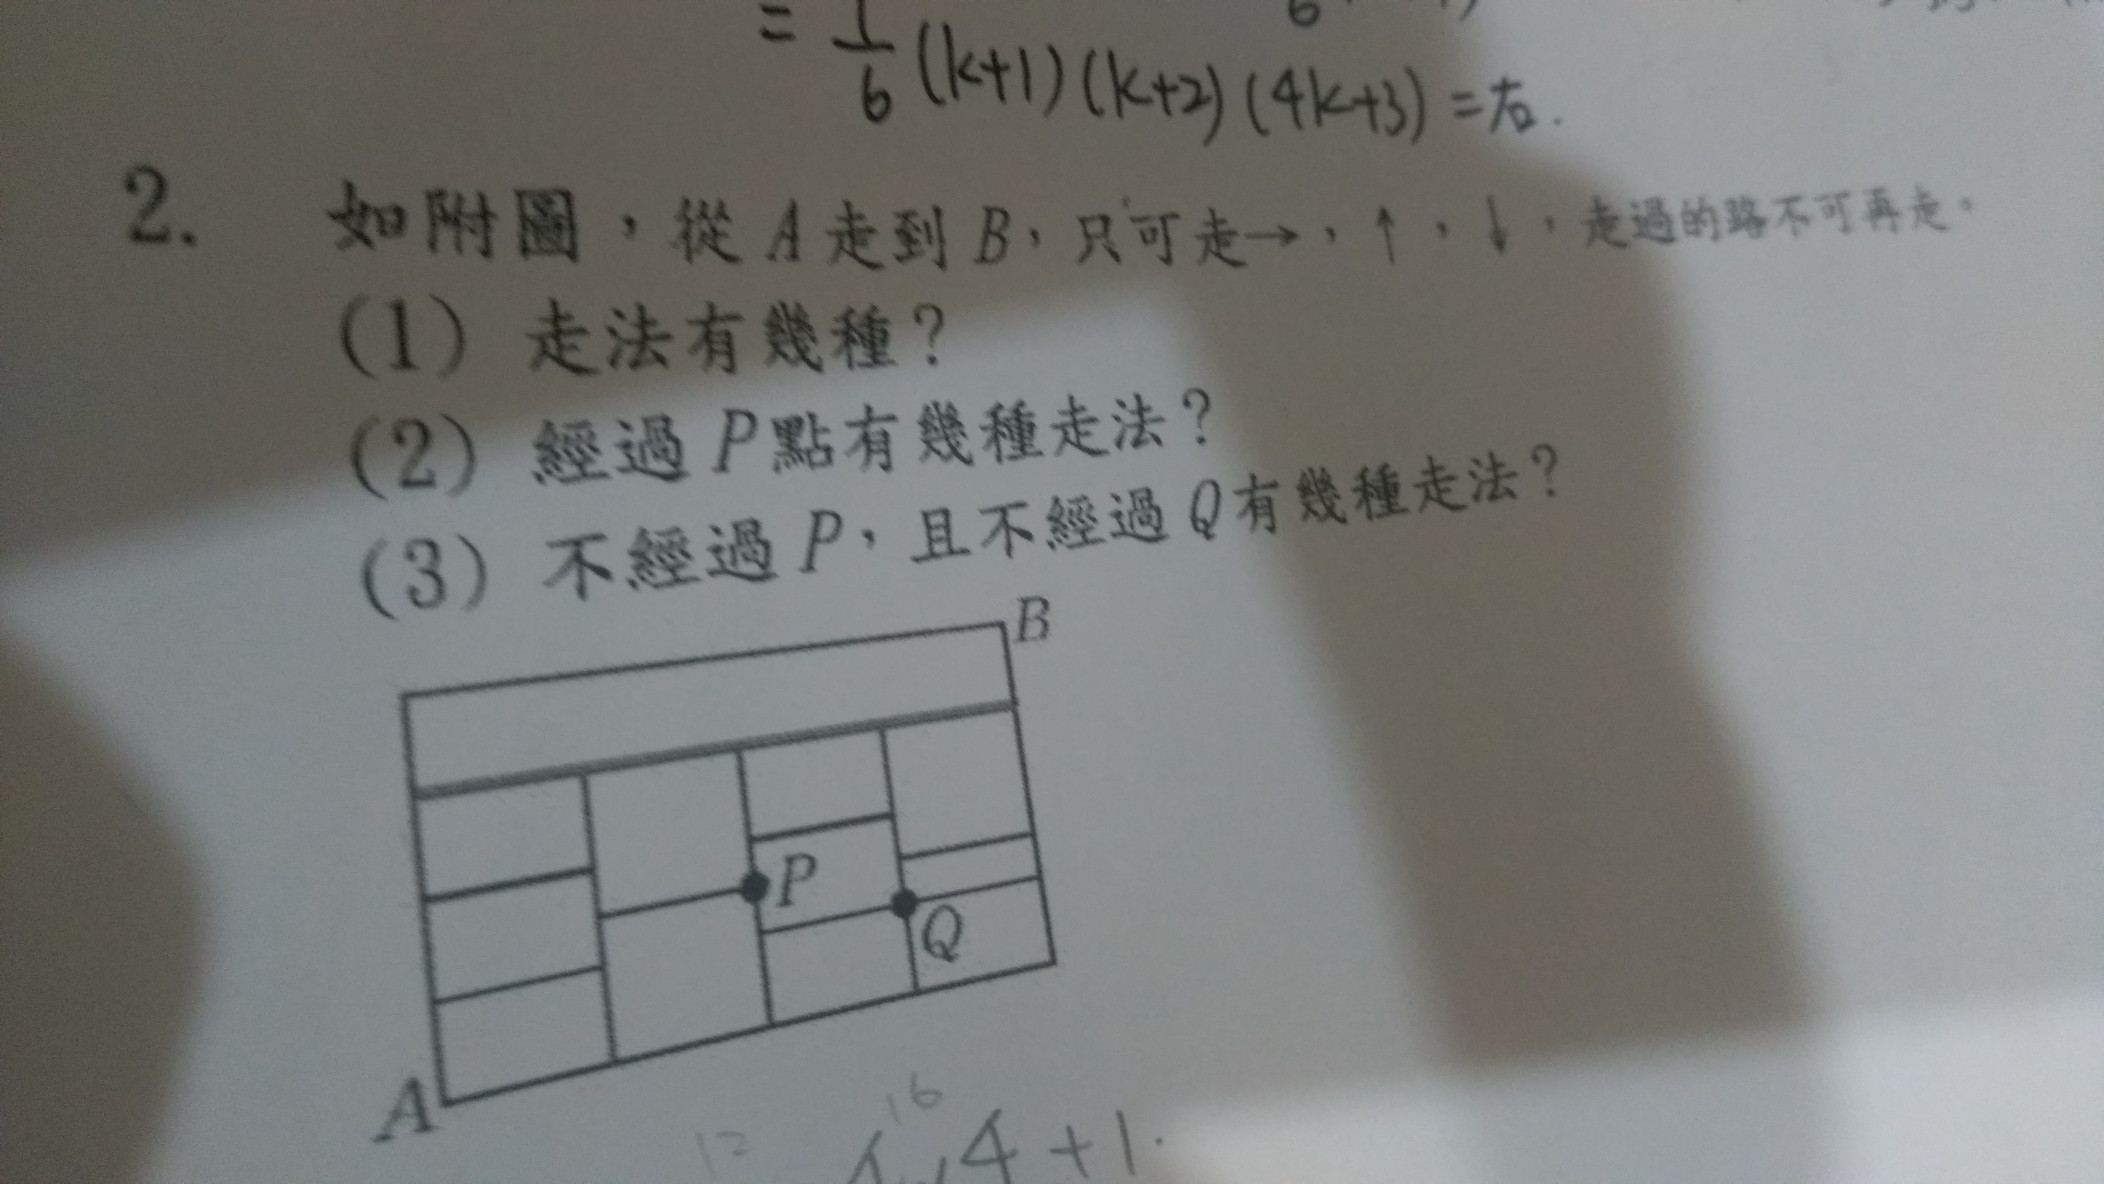 = 1/6 (k+1)(k+2)(4k+3) = 右.
2. 如附圖，從 A 走到 B，只可走→，↑，↓，走過的路不可再走。
(1) 走法有幾種？
(2) 經過 P 點有幾種走法？
(3) 不經過 P，且不經過 Q 有幾種走法？
B
P
Q
A
16
12
4+1.